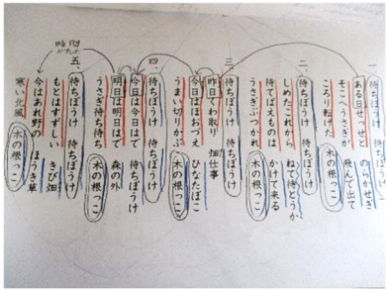 一、待ちぼうけ 待ちぼうけ
ある日せっせと のらかせぎ
そこへうさぎが 飛んで出て
ころり転げた 木の根っこ
二、待ちぼうけ 待ちぼうけ
しめたこれから ねて待とうか
待てばえものは かけて来る
うさぎぶつかれ 木の根っこ
三、待ちぼうけ 待ちぼうけ
昨日くわ取り 畑仕事
今日はほおづえ ひなたぼこ
うまい切りかぶ 木の根っこ
四、待ちぼうけ 待ちぼうけ
今日は今日はで 待ちぼうけ
明日は明日はで 森の外
うさぎ待ち待ち 木の根っこ
五、待ちぼうけ 待ちぼうけ
もとはすずしい きび畑
今はあれ野の ほうき草
寒い北風 木の根っこ
時間